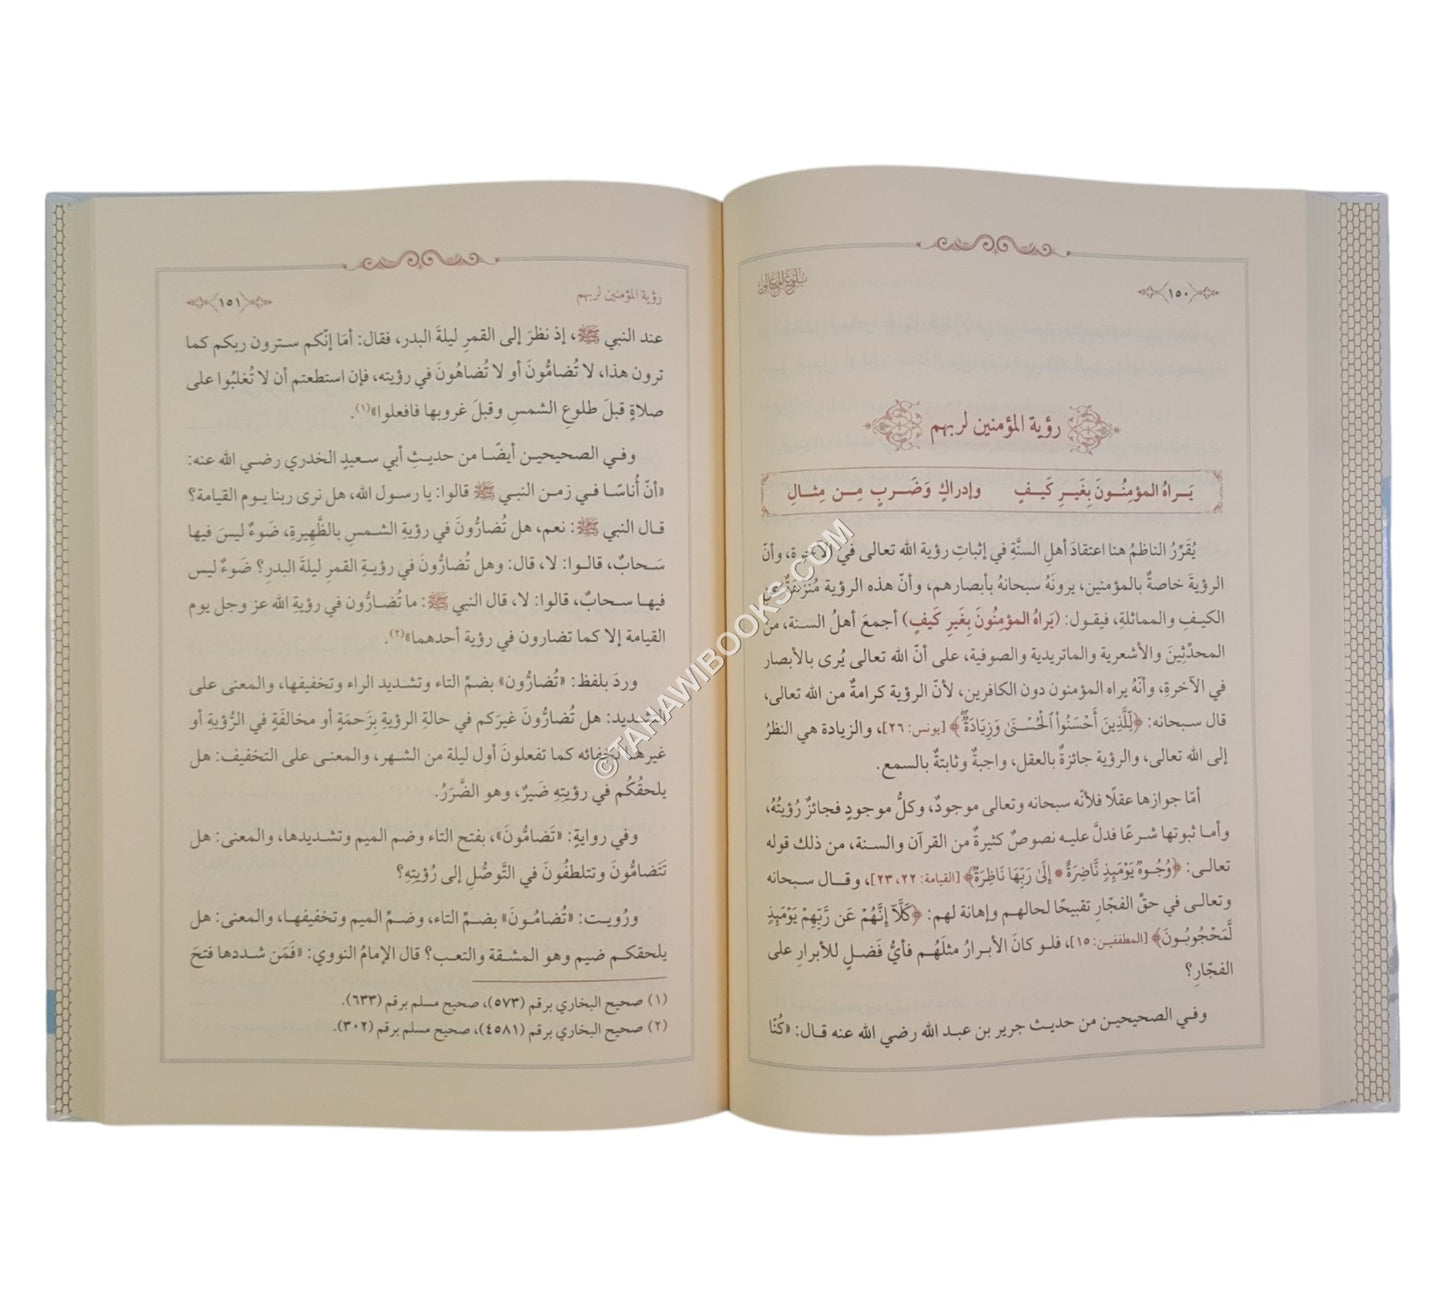 ١٥٠
بلوغ المعالي
رؤية المؤمنين لربهم
يَـراهُ المؤمِنُـونَ بِغَيـرِ كَيـفٍ وإدراكٍ وَضَـربٍ مِـن مِثـالِ
يُقَرِّرُ الناظمُ هنا اعتقادَ أهلِ السنَّةِ في إثباتِ رؤية الله تعالى في الآخرة، وأنّ
الرؤيةَ خاصةٌ بالمؤمنين، يرونَهُ سبحانهُ بأبصارهم، وأنّ هذه الرؤية مُنَزَّهَةٌ عن
الكيـفِ والمماثلةِ، فيقـول: (يَراهُ المؤمِنُونَ بِغَيرِ كَيفٍ) أجمعَ أهلُ السنة، من
المحدِّثِينَ والأشعرية والماتريدية والصوفية، على أنّ الله تعالى يُرى بالأبصار
في الآخرةِ، وأنَّهُ يراه المؤمنون دون الكافرين، لأنّ الرؤية كرامةٌ من الله تعالى،
قال سـبحانه: ﴿لِّلَّذِينَ أَحْسَنُواْ ٱلْحُسْنَىٰ وَزِيَادَةٌ﴾ [يونس: ٢٦]، والزيادة هي النظرُ
إلى الله تعالى، والرؤية جائزةٌ بالعقل، واجبةٌ وثابتةٌ بالسمع.
أمّا جوازها عقلًا فلأنّه سبحانه وتعالى موجودٌ، وكلُّ موجودٍ فجائزٌ رُؤيتُهُ،
وأمـا ثبوتها شـرعًا فدلَّ عليـه نصوصٌ كثيرةٌ من القرآن والسـنة، من ذلك قوله
تعالـى: ﴿وُجُوهٌ يَوْمَئِذٍ نَّاضِرَةٌ * إِلَىٰ رَبِّهَا نَاظِرَةٌ﴾ [القيامة: ٢٢، ٢٣]، وقـال سـبحانه
وتعالـى في حقِّ الفجّارِ تقبيحًا لحالهـم وإهانة لهم: ﴿كَلَّآ إِنَّهُمْ عَن رَّبِّهِمْ يَوْمَئِذٍ
لَّمَحْجُوبُـونَ﴾ [المطففيـن: ١٥]، فلـو كانَ الأبـرارُ مثلَهُـم فأيُّ فَضـلٍ للأبرارِ على
الفجّارِ؟
وفـي الصحيحيـن من حديـث جرير بن عبـد الله رضي الله عنه قـال: «كُنّا
رؤية المؤمنين لربهم
١٥١
عند النبي ﷺ، إذ نظرَ إلى القمرِ ليلةَ البدر، فقال: أمَا إنّكم سـترون ربكم كما
ترون هذا، لا تُضامُّونَ أو لا تُضاهُونَ في رؤيته، فإن استطعتم أن لا تُغلبُوا على
صلاةٍ قبلَ طلوعِ الشمسِ وقبلَ غروبها فافعلوا»(١).
وفـي الصحيحيـن أيضًـا من حديـثِ أبي سـعيدٍ الخدري رضـي الله عنه:
«أنّ أُناسًـا فـي زمـن النبـي ﷺ قالوا: يا رسـول الله، هل نرى ربنا يـوم القيامة؟
قـال النبي ﷺ: نعم، هل تُضارُّونَ في رؤيةِ الشـمسِ بالظَّهِيرةِ، ضَوءٌ ليسَ فيها
سَـحابٌ، قالـوا: لا، قال: وهل تُضارُّونَ في رؤيـةِ القمرِ ليلةَ البدرِ؟ ضَوءٌ ليس
فيهـا سـحابٌ، قالوا: لا، قال النبي ﷺ: ما تُضـارُّون في رؤيةِ الله عز وجل يوم
القيامة إلا كما تضارون في رؤية أحدهما»(٢).
وردَ بلفظ: «تُضارُّون» بضـمِّ التاء وتشـديد الراء وتخفيفها، والمعنى على
التشديد: هل تُضارُّونَ غيرَكم في حالة الرؤيةِ بِزَحمَةٍ أو مخالفةٍ في الرُّؤيةِ أو
غيرها لخفائه كما تفعلونَ أول ليلة من الشـهر، والمعنـى على التخفيف: هل
يلحقُكُم في رؤيتِهِ ضَيرٌ، وهو الضَّرَرُ.
وفي روايةٍ: «تَضامُّونَ»، بفتح التاء وضم الميم وتشديدها، والمعنى: هل
تَتَضامُّونَ وتتلطفُونَ في التَّوصُّلِ إلى رُؤيتِهِ؟
ورُويـت: «تُضامُـونَ» بضـمِّ التاء، وضـمِّ الميـم وتخفيفهـا، والمعنى: هل
يلحقكـم ضيم وهو المشـقة والتعب؟ قال الإمامُ النووي: «فَمَن شـددها فتحَ
(١) صحيح البخاري برقم (٥٧٣)، صحيح مسلم برقم (٦٣٣).
(٢) صحيح البخاري برقم (٤٥٨١)، صحيح مسلم برقم (٣٠٢).
©TAHAWIBOOKS.COM